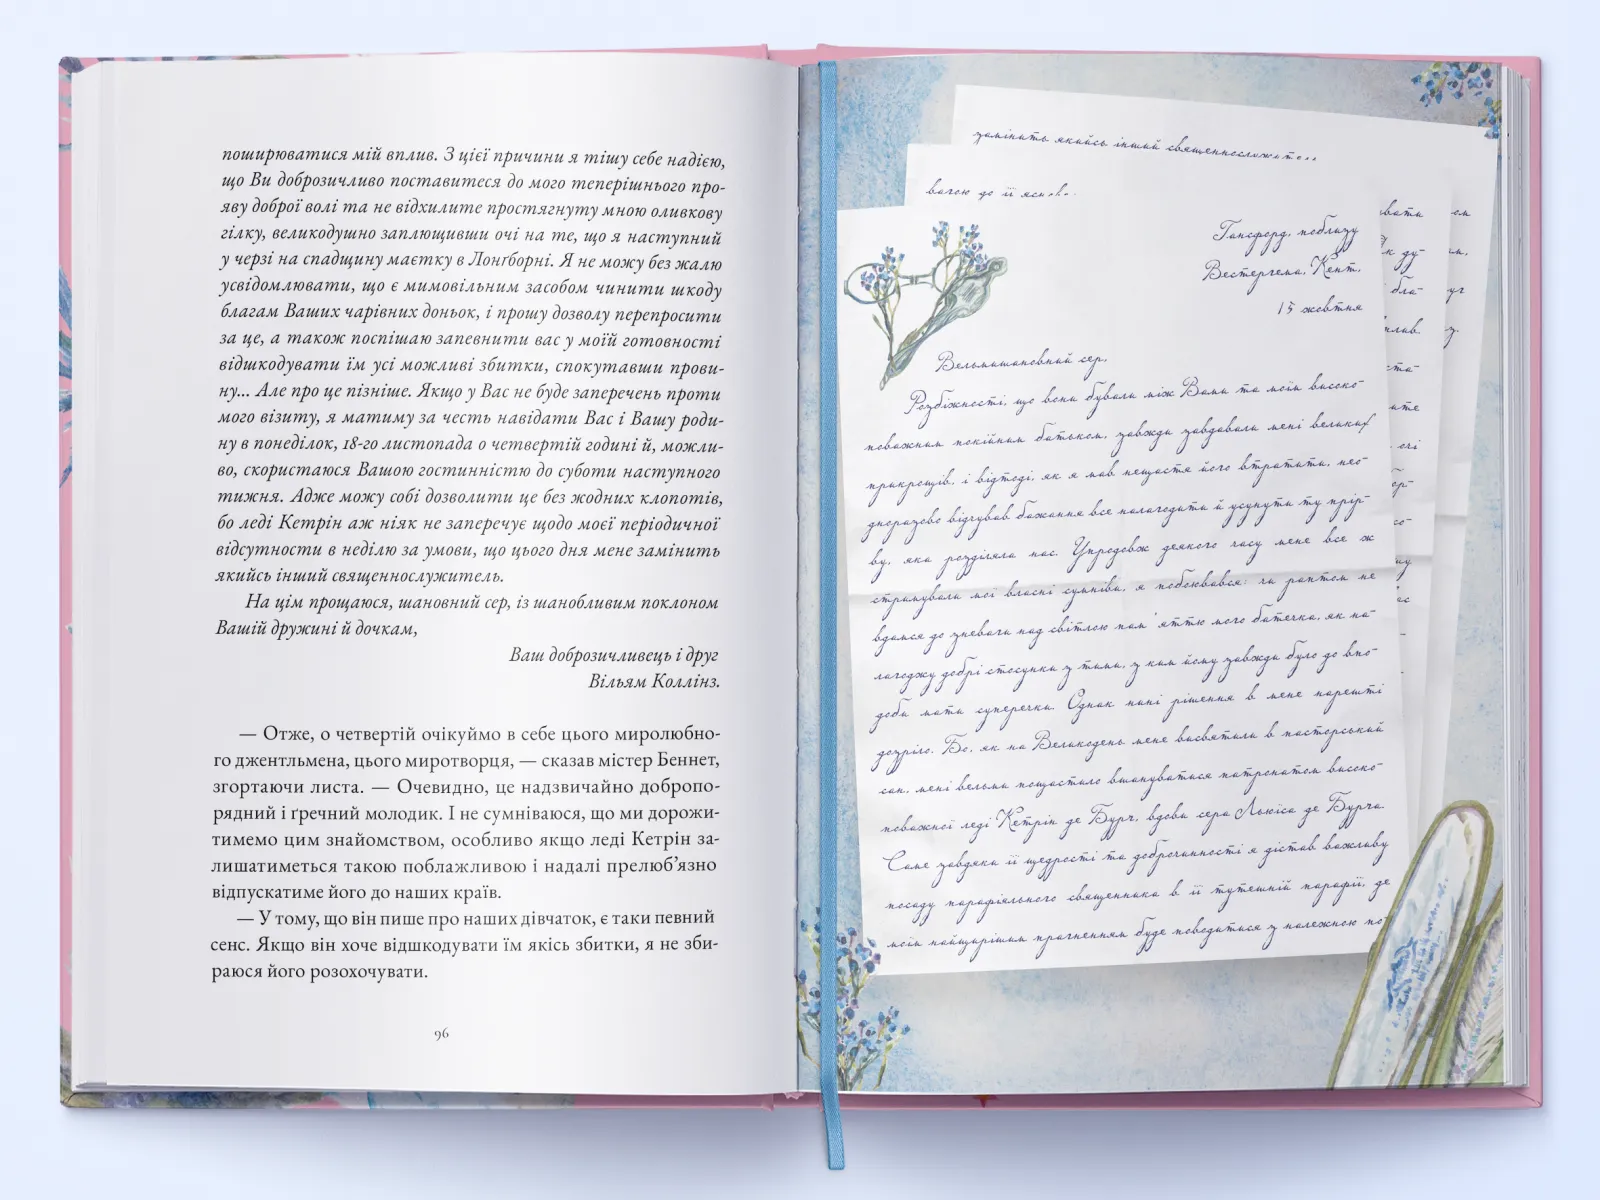 поширюватися мій вплив. З цієї причини я тішу себе надією,
що Ви доброзичливо поставитеся до мого теперішнього про-
яву доброї волі та не відхилите простягнуту мною оливкову
гілку, великодушно заплющивши очі на те, що я наступний
у черзі на спадщину маєтку в Лонґборні. Я не можу без жалю
усвідомлювати, що є мимовільним засобом чинити шкоду
благам Ваших чарівних доньок, і прошу дозволу перепросити
за це, а також поспішаю запевнити вас у моїй готовності
відшкодувати їм усі можливі збитки, спокутавши прови-
ну... Але про це пізніше. Якщо у Вас не буде заперечень проти
мого візиту, я матиму за честь навідати Вас і Вашу роди-
ну в понеділок, 18-го листопада о четвертій годині й, можли-
во, скористаюся Вашою гостинністю до суботи наступного
тижня. Адже можу собі дозволити це без жодних клопотів,
бо леді Кетрін аж ніяк не заперечує щодо моєї періодичної
відсутности в неділю за умови, що цього дня мене замінить
якийсь інший священнослужитель.
На цім прощаюся, шановний сер, із шанобливим поклоном
Вашій дружині й дочкам,
Ваш доброзичливець і друг
Вільям Коллінз.
— Отже, о четвертій очікуймо в себе цього миролюбно-
го джентльмена, цього миротворця, — сказав містер Беннет,
згортаючи листа. — Очевидно, це надзвичайно добропо-
рядний і ґречний молодик. І не сумніваюся, що ми дорожи-
тимемо цим знайомством, особливо якщо леді Кетрін за-
лишатиметься такою поблажливою і надалі прелюб’язно
відпускатиме його до наших країв.
— У тому, що він пише про наших дівчаток, є таки певний
сенс. Якщо він хоче відшкодувати їм якісь збитки, я не зби-
раюся його розохочувати.
96
замінить якийсь інший
вагою до її
Гансфорд, поблизу
Вестергема, Кент,
15 жовтня
Вельмишановний сер,
Розбіжності, що вони бували між Вами та моїм високо-
поважним покійним батьком, завжди завдавали мені великих
прикрощів, і відтоді, як я мав нещастя його втратити, нео-
дноразово відчував бажання все полагодити й усунути ту прір-
ву, яка розділяла нас. Упродовж деякого часу мене все ж
стримували мої власні сумніви, я побоювався: чи раптом не
вдамся до зневаги над світлою пам'яттю мого батечка, як на-
лагоджу добрі стосунки з тими, з ким йому завжди було до впо-
доби мати суперечки. Однак нині рішення в мене нарешті
дозріло. Бо, як на Великдень мене висвятили в пасторський
сан, мені вельми пощастило вшануватися патронатом високо-
поважної леді Кетрін де Бурґ, вдови сера Льюїса де Бурґа.
Саме завдяки її щедрості та доброчинності я дістав важливу
посаду парафіяльного священника в її тутешній парафії, де
моїм найщирішим прагненням буде поводитися з належною по-